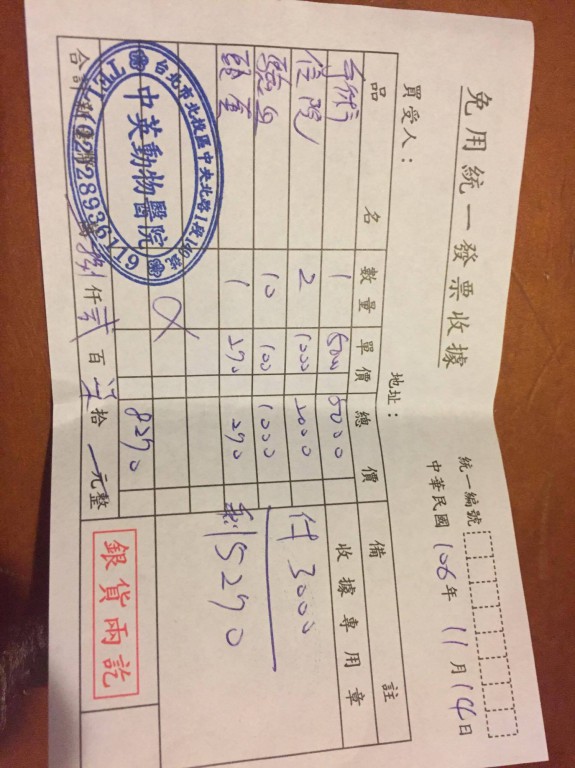 免用統一發票收據
統一編號
中華民國 106年 11月 14日
買受人：
地址：
品名 數量 單價 總價 備註
手術 1 5000 5000
住院 2 1000 2000
1000
10 100
頭套 1 290 290
8290
收據專用章
付 3000
剩 5290
合計新
仟 貳 百 拾 元整
台北市北投區中央北路1段
中英動物醫院
TEL 02-28936119
銀貨兩訖